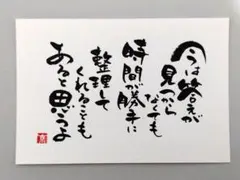 今は答えが
見つから
なくても
時間が勝手に
整理して
くれることも
あると思うよ